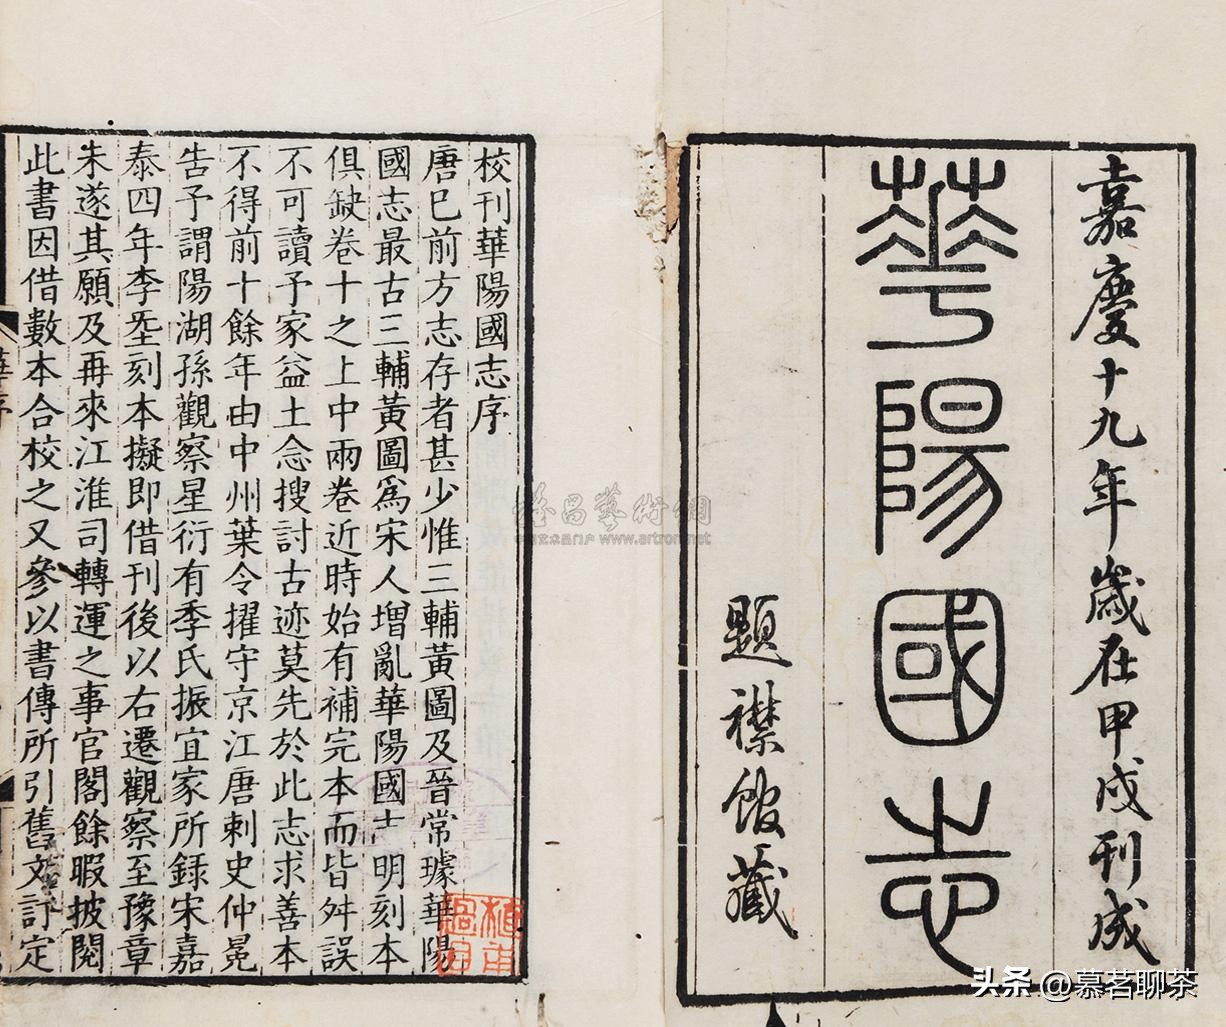 嘉慶十九年歲在甲戌刊成
華陽國志
題襟館藏
校刊華陽國志序
唐已前方志存者甚少惟三輔黃圖及晉常璩華陽
國志最古三輔黃圖爲宋人增亂華陽國志明刻本
俱缺卷十之上中兩卷近時始有補完本而皆舛誤
不可讀予家益土念搜討古迹莫先於此志求善本
不得前十餘年由中州葉令擢守京江唐刺史仲冕
告予謂陽湖孫觀察星衍有季氏振宜家所録宋嘉
泰四年李𡊮刻本擬即借刊後以右遷觀察至豫章
未遂其願及再來江淮司轉運之事官閣餘暇披閱
此書因借數本合校之又參以書傳所引舊文訂定
華序
www.artron.net
头条 @慕茗聊茶